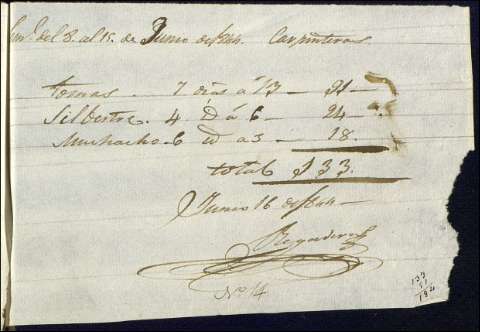 Semª del 8. al 15. de Junio de 1844. Carpinteros
tomas. 7 dias á 13 — 91 —
Silbestre. 4. D á 6 — 24 —
Muchacho. 6 id a 3 — 18.
total 133.
Junio 16 de 1844 —
Nº 14
133
51
184